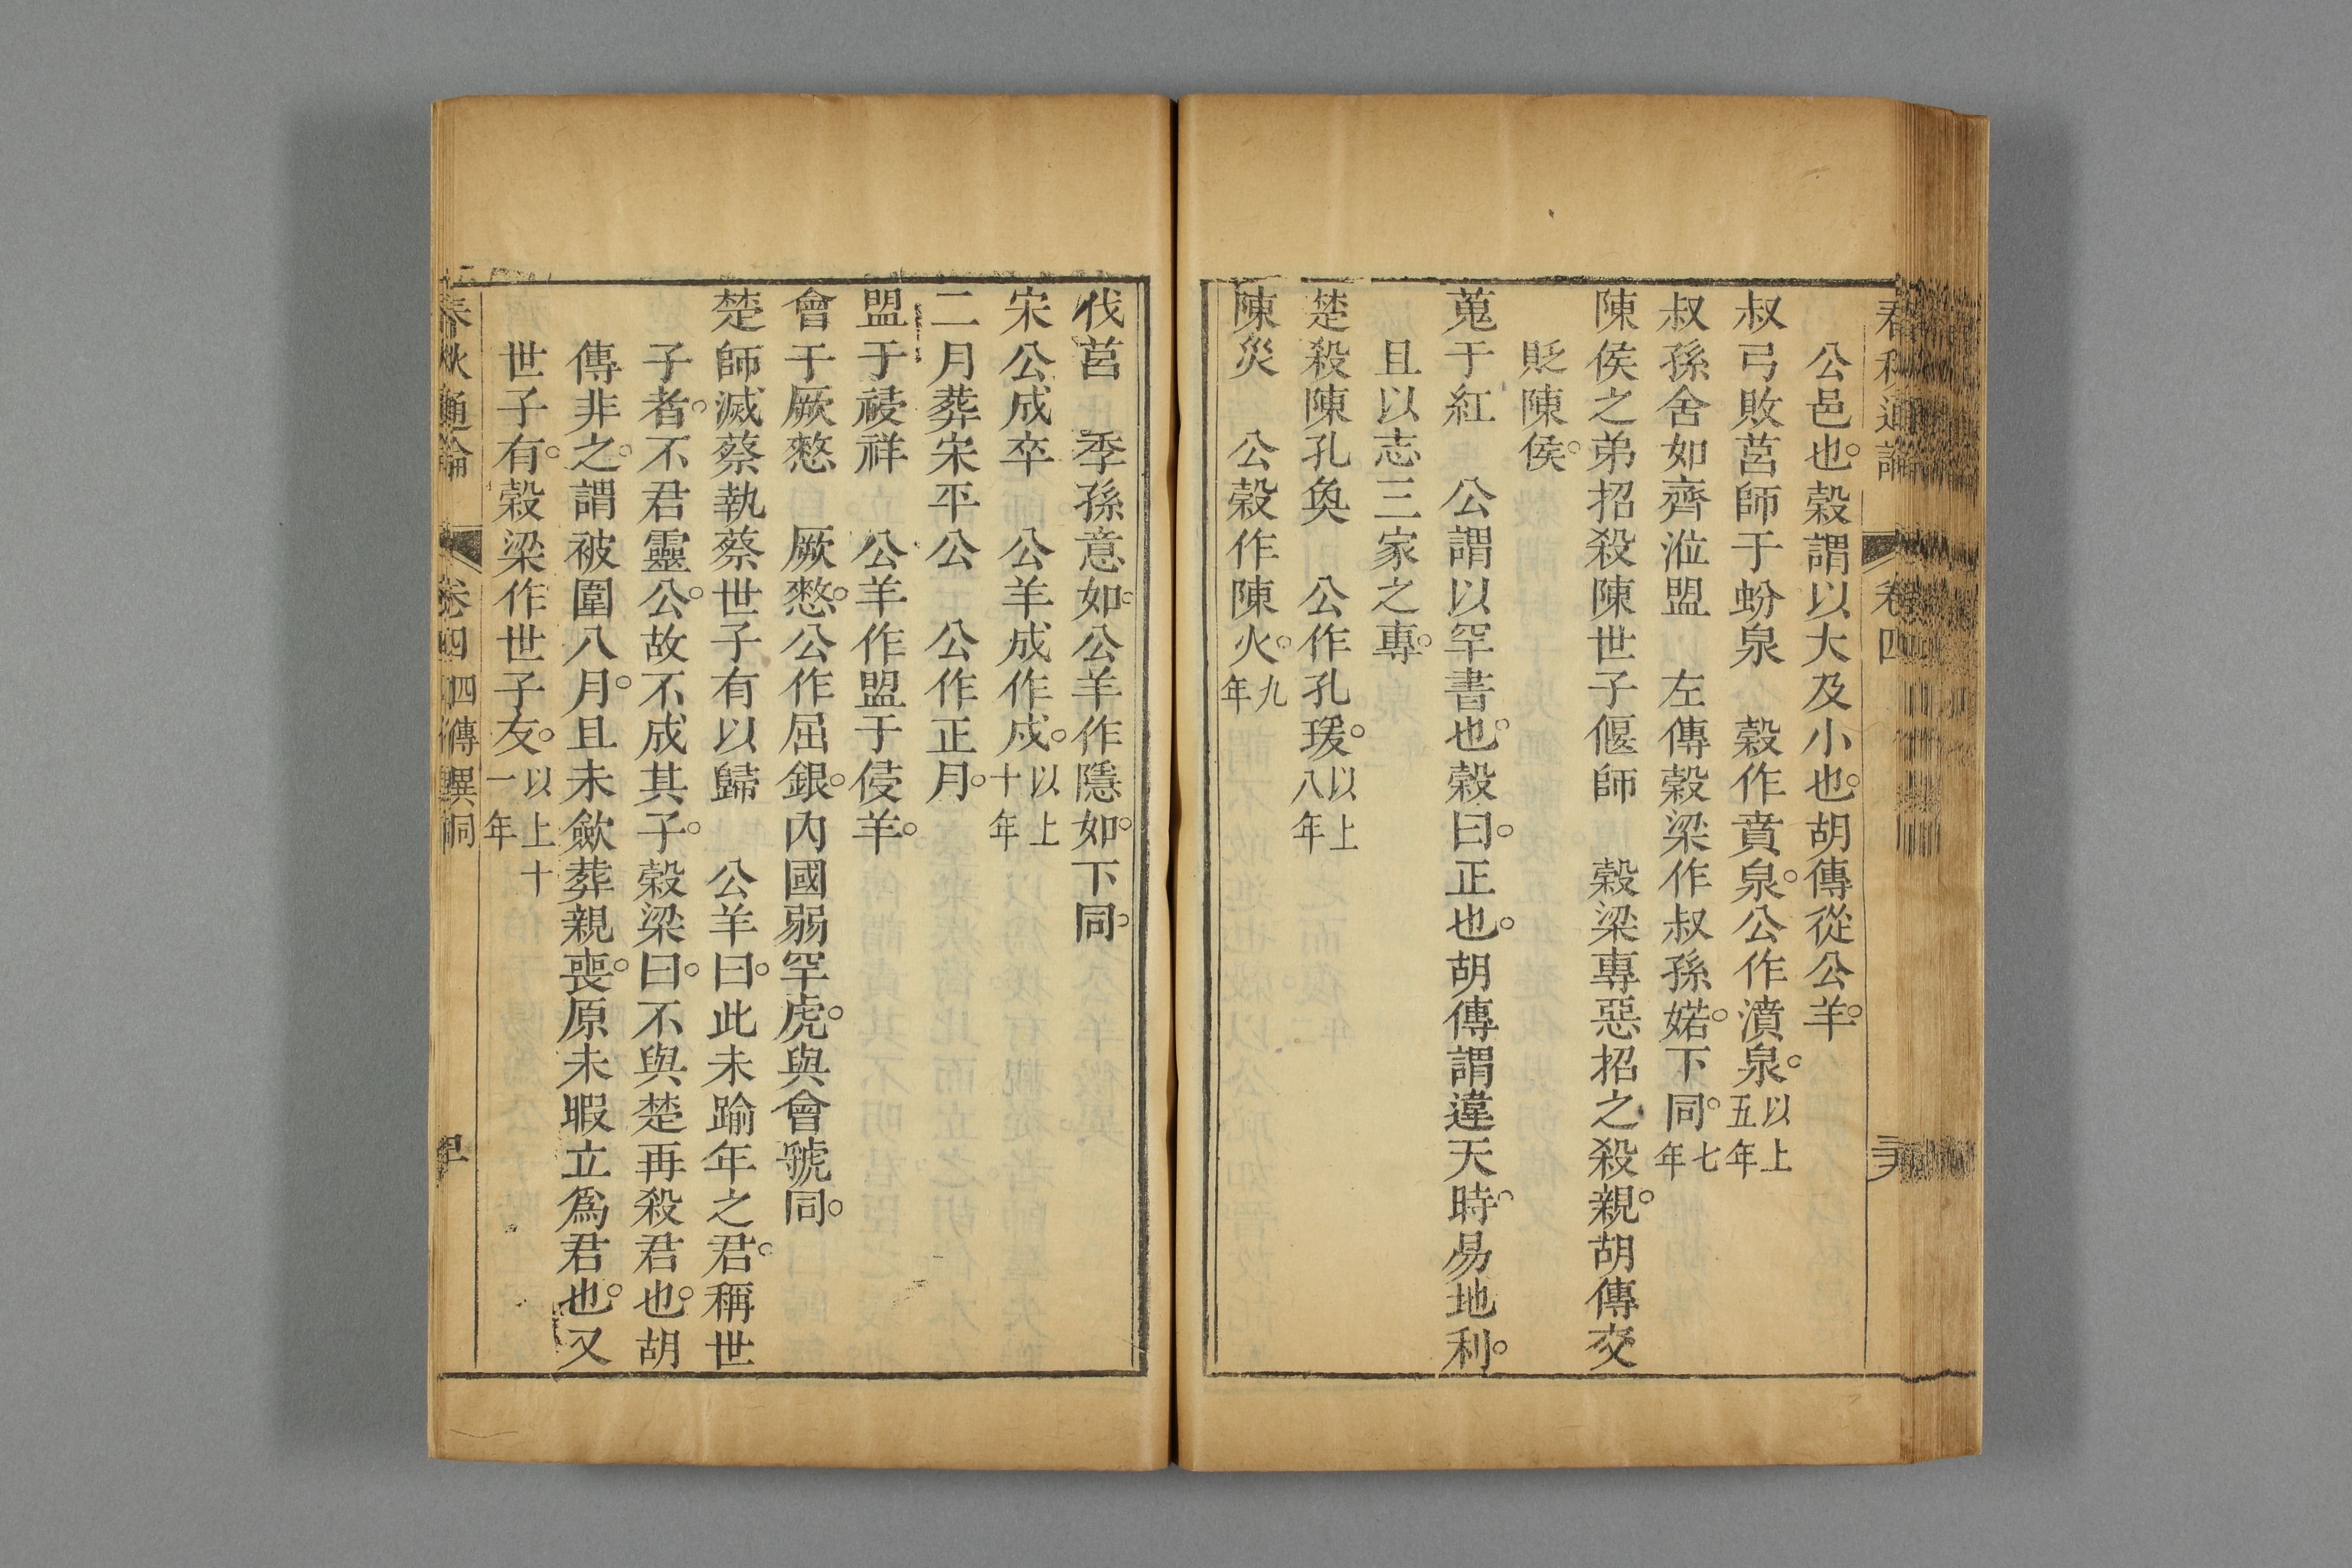 公邑也。穀謂以大及小也。胡傳從公羊。
叔弓敗莒師于蚡泉　穀作賁泉。公作濆泉。以上五年
叔孫舍如齊涖盟　左傳穀梁作叔孫婼。下同。七年
陳侯之弟招殺陳世子偃師　穀梁專惡招之殺親。胡傳交
貶陳侯。
蒐于紅　公謂以罕書也。穀曰。正也。胡傳謂違天時。易地利。
且以志三家之專。
楚殺陳孔奐　公作孔瑗。以上八年
陳災　公穀作陳火。九年
伐莒　季孫意如。公羊作隱如。下同。
宋公成卒　公羊成作戍。以上十年
二月葬宋平公　公作正月。
盟于祲祥　公羊作盟于侵羊。
會于厥憖　厥憖。公作屈銀。內國弱罕虎。與會號同。
楚師滅蔡執蔡世子有以歸　公羊曰。此未踰年之君。稱世
子者。不君靈公。故不成其子。穀梁曰。不與楚再殺君也。胡
傳非之。謂被圍八月。且未斂葬親喪。原未暇立爲君也。又
世子有。穀梁作世子友。以上十一年
春秋通論　卷四　四傳異同